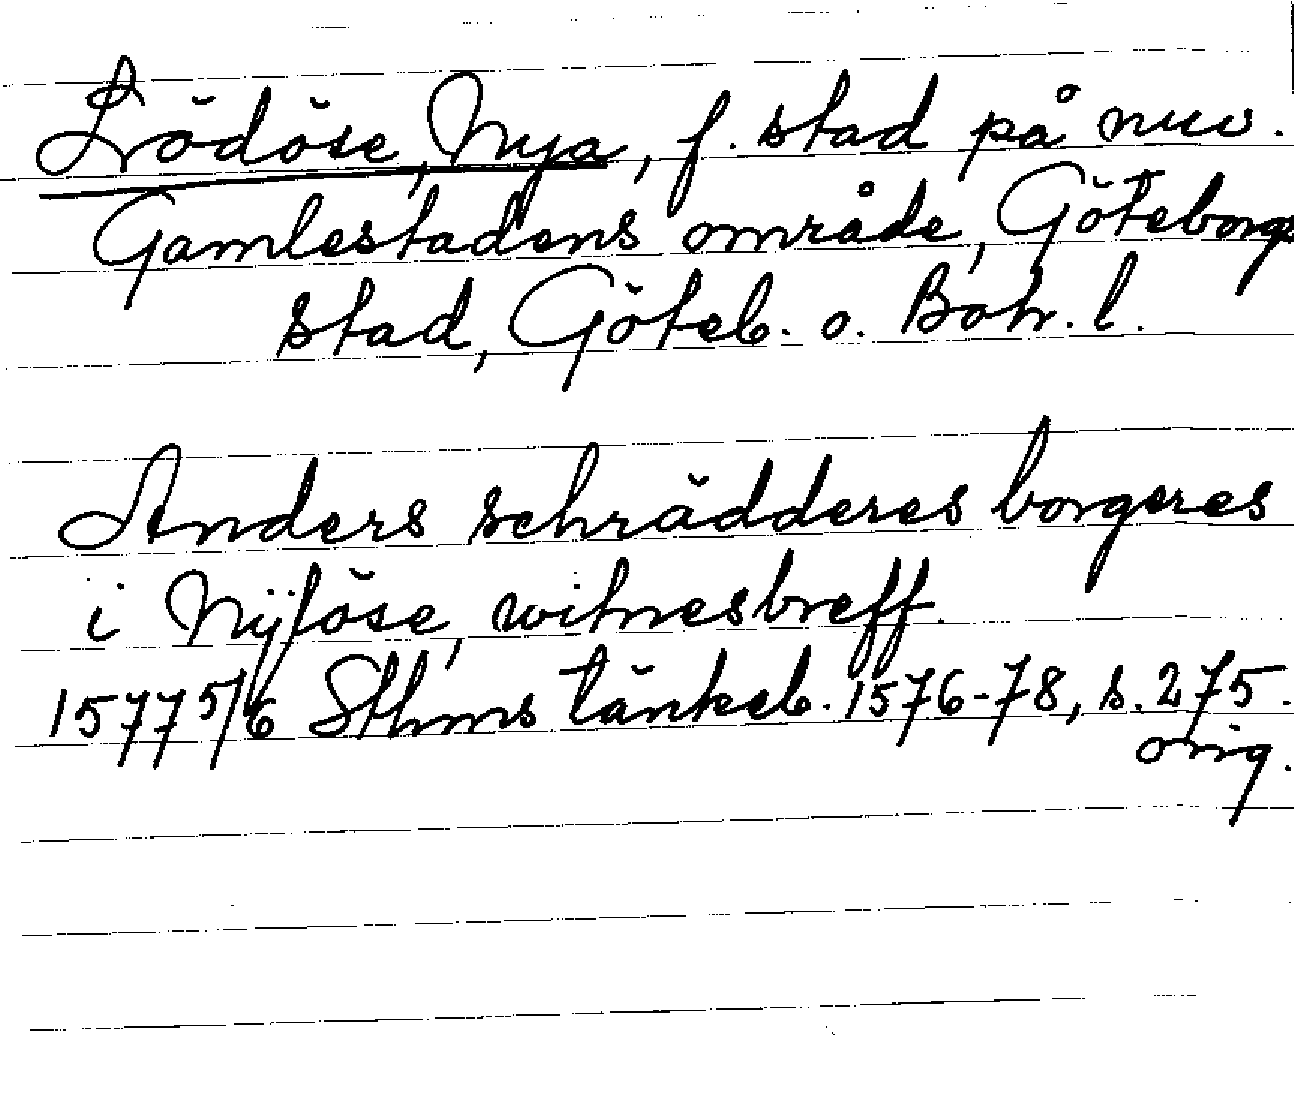 Lödöse, Nya, f. stad på nuv.
Gamlestadens område, Göteborgs
stad, Göteb. o. Boh. l.
Anders schrädderes borgeres
i Nÿlöse, witnesbreff.
1577 5/6 Sthms tänkeb. 1576-78, s. 275.
orig.